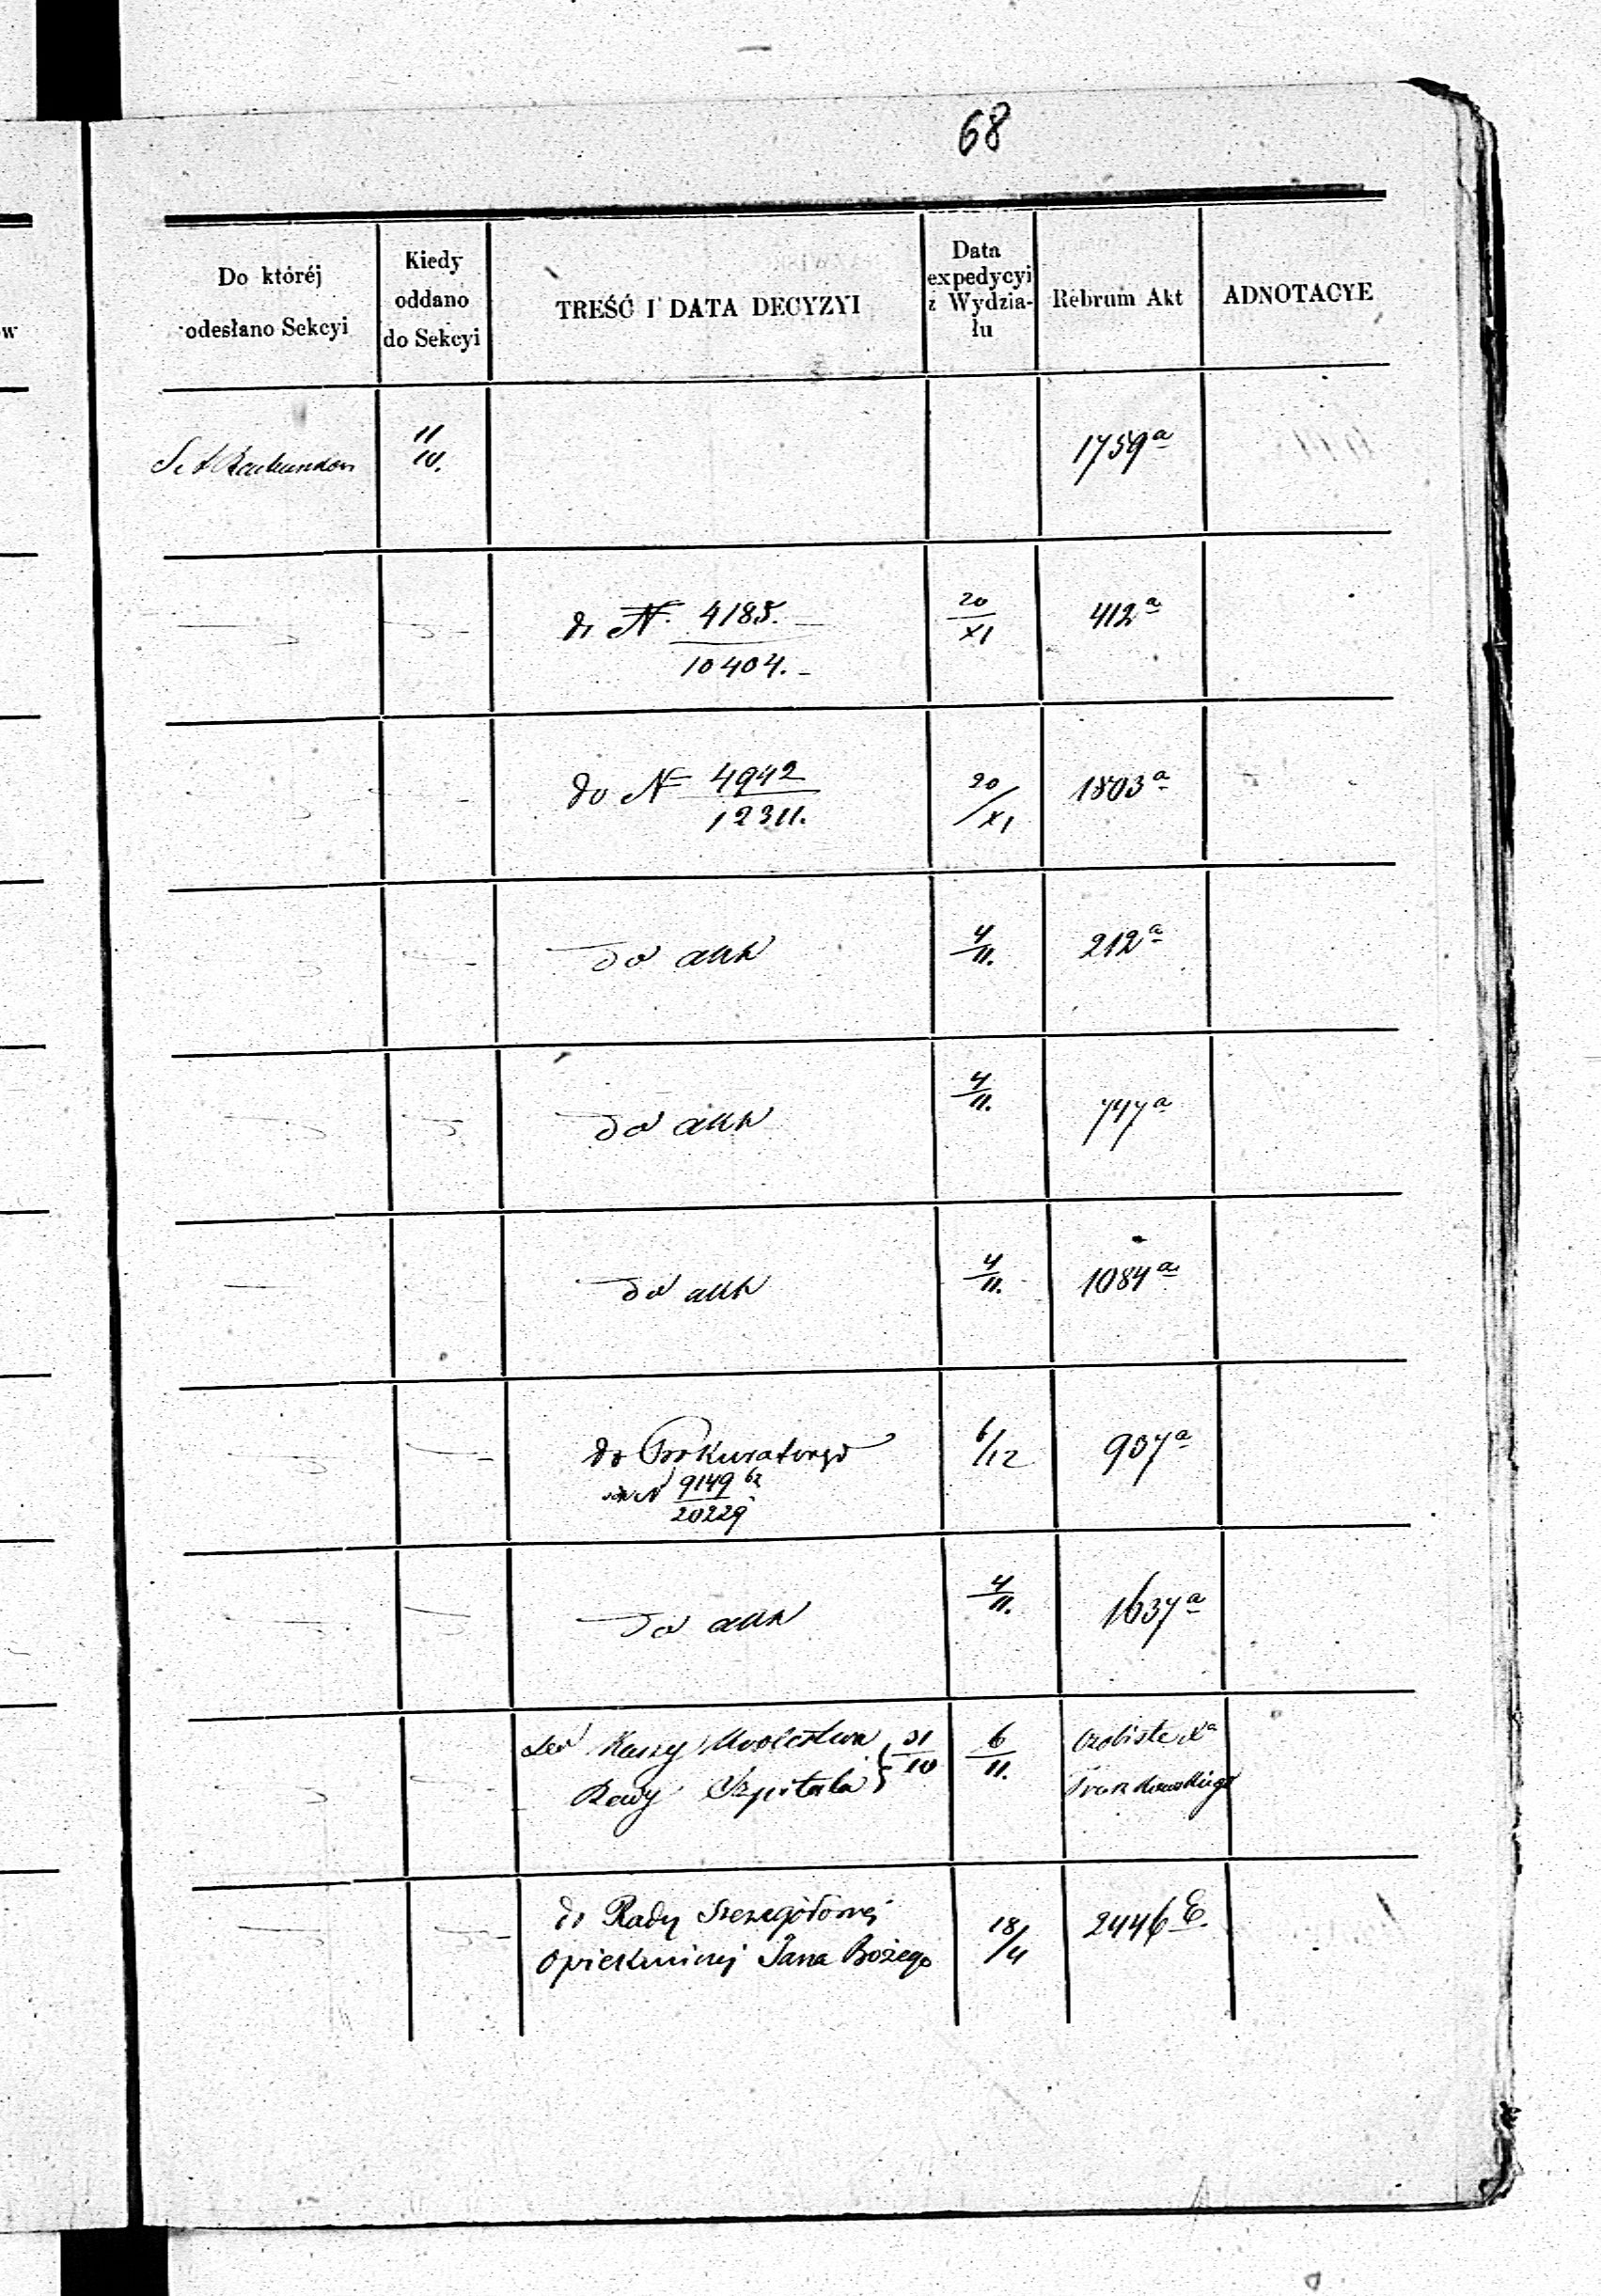 68
Do któréj
odesłano Sekcyi
Kiedy
oddano
do Sekcyi
TREŚĆ I DATA DECYZYI
Data
expedycyi
z Wydzia-
łu
Rebrum Akt
ADNOTACYE
11
10.
1759a
do N. 4185.
10404.
20
XI
412a
do N 4942
12311.
20
/XI
1803a
do akt
4
11.
212a
do akt
4
11.
747a
do akt
4
11.
1084a
do Prokuratorgo
N 9149
20229
6/12
907a
do akt
4
11.
1637a
Kassy
Rady Szpitala
31
10
6
11.
Osobiste Xa
do Rady Szczegółowej
Opiekuńczej Jana Bożego
18
/4
2446 E.
w